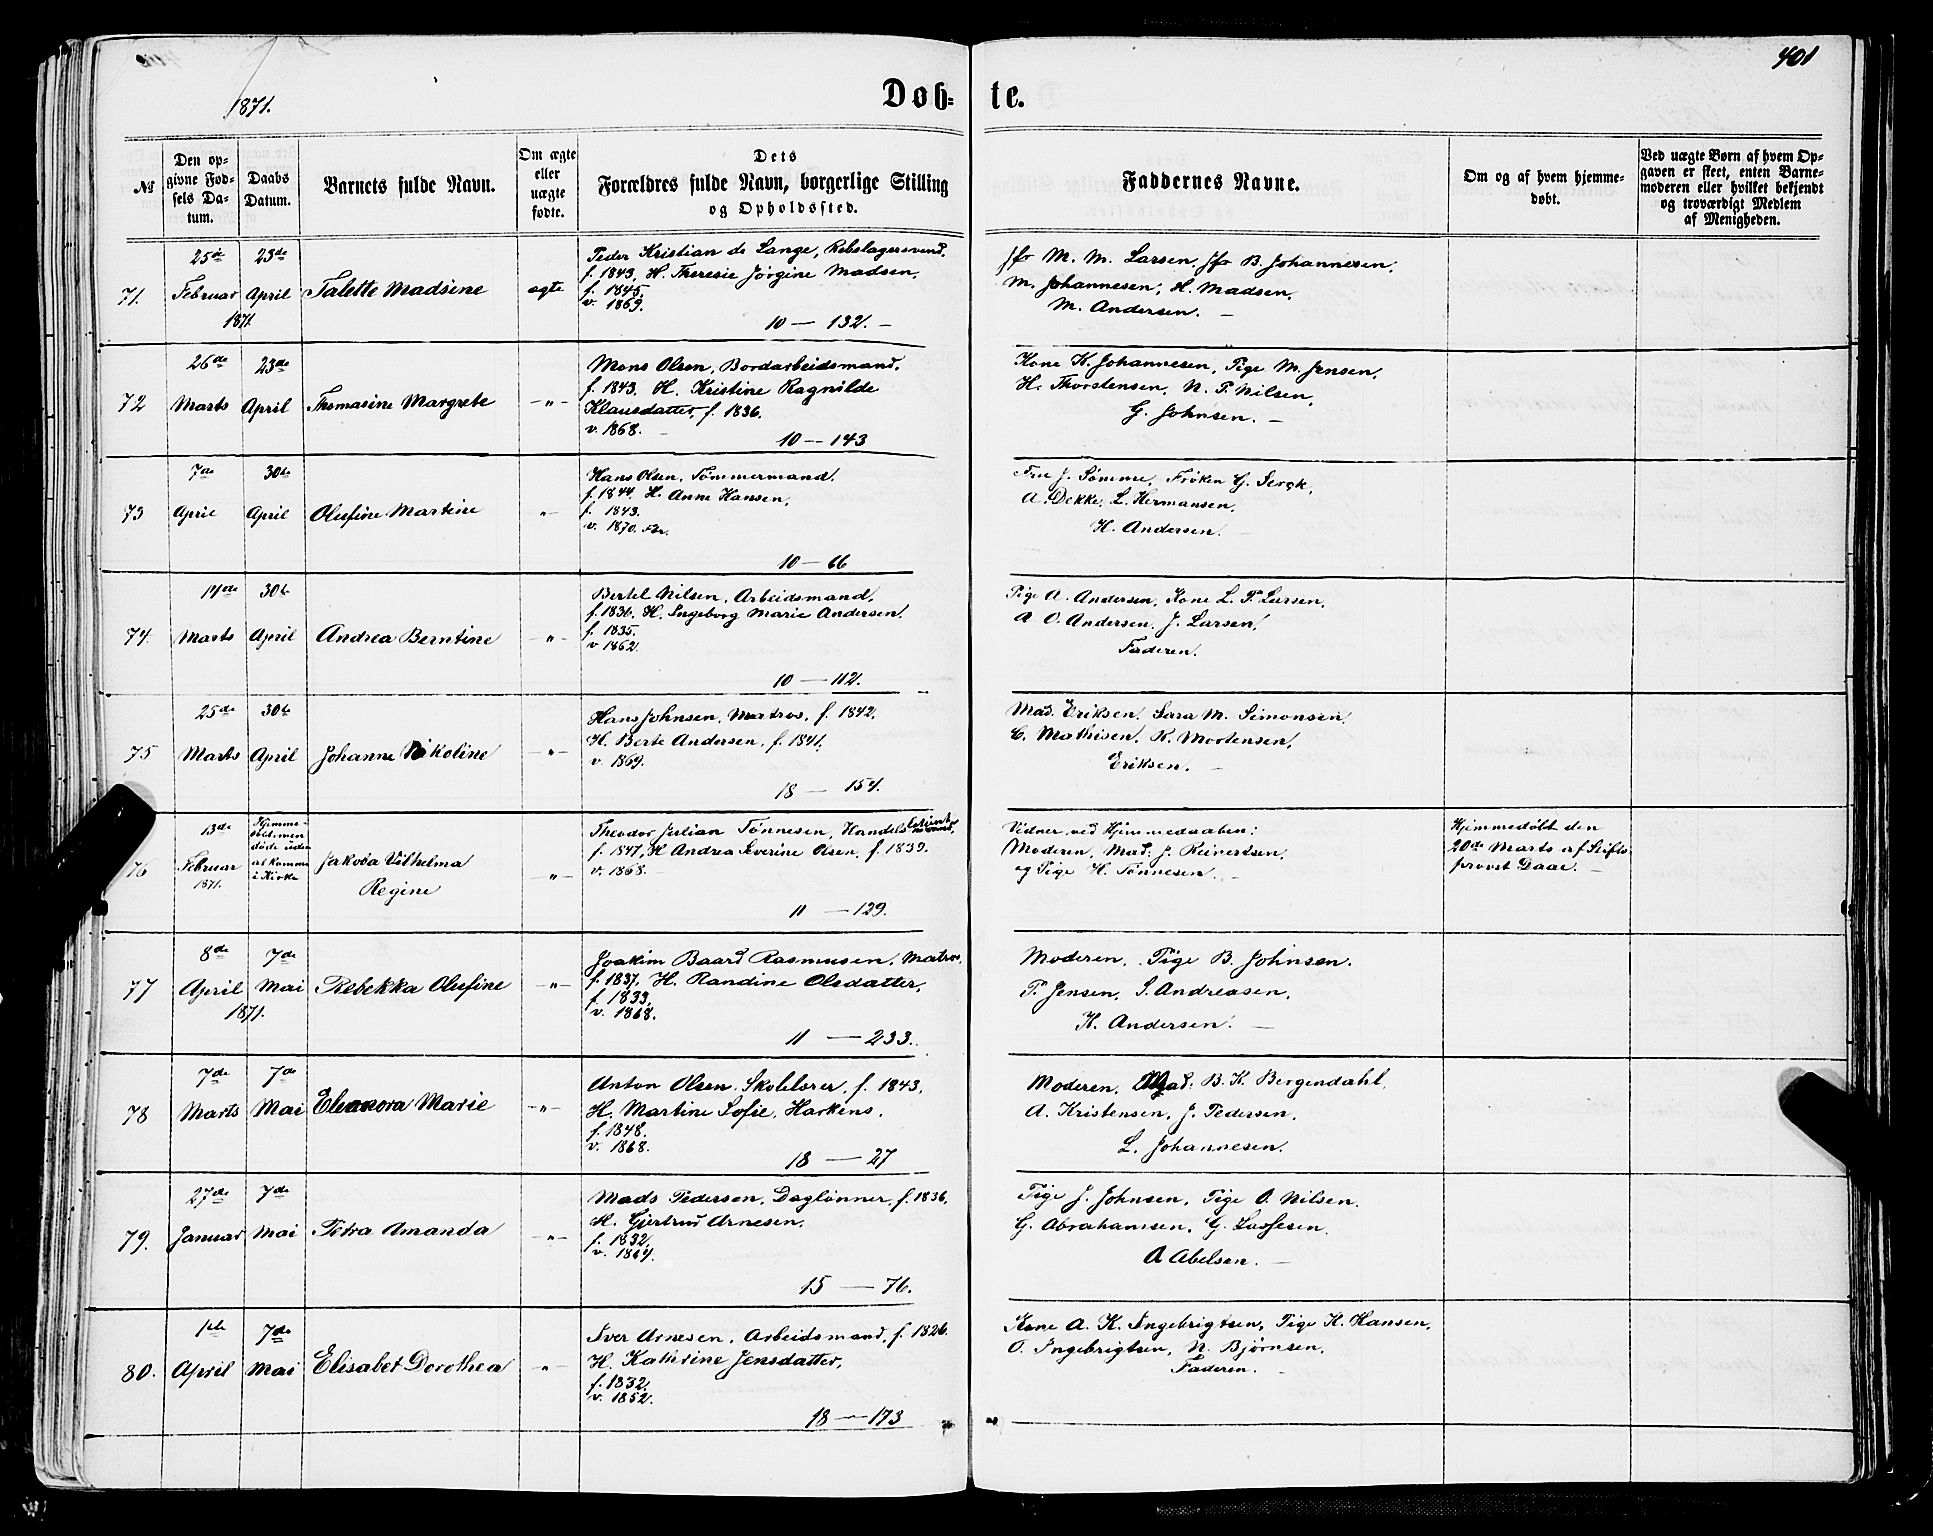 401
1871.
Døb= te.
№
Den op=
givne Fød=
sels Da=
tum.
Daabs
Datum.
Barnets fulde Navn.
Om ægte
eller
uægte
fødte.
Dets
Forældres fulde Navn, borgerlige Stilling
og Opholdssted.
Faddernes Navne.
Om og af hvem hjemme=
døbt.
Ved uægte Børn af hvem Op=
gaven er skeet, enten Barne=
moderen eller hvilket bekjendt
og troværdigt Medlem
af Menigheden.
71.
25de
Februar
1871.
23de
April
Talette Madsine
ægte
Peder Kristian de Lange, Rebslagersvend,
f. 1843, H. Theresie Jørgine Madsen,
f. 1845,
v. 1869.
10 — 132. —
Jfr M. M. Larsen, Jfr B. Johannesen,
M. Johannesen, H. Madsen,
M. Andersen. —
72
26de
Marts
23de
April
Thomasine Margrete
—"—
Mons Olsen, Bordarbeidsmand,
f. 1843, H. Kristine Ragnilde
Klausdatter, f. 1836.
v. 1868. —
10 — 143
Kone K. Johannesen, Pige M. Jensen,
H. Thorstensen, N. P. Nilsen,
G. Johnsen. —
73
7de
April
30te
April
Olufine Martine
"—
Hans Olsen, Tømmermand,
f. 1844. H. Anne Hansen,
f. 1843.
v. 1870.
10 — 66
Fru J. Sømme, Frøken G.
A. Dekke, L. Hermansen,
H. Andersen. —
74.
14de
Marts
30te
April
Andrea Berntine
—"—
Bertel Nilsen, Arbeidsmand,
f. 1836. H. Ingeborg Marie Andersen,
f. 1835.
v 1862.
10 — 112.
Pige A. Andersen, Kone L. P. Larsen,
A. O. Andersen, J. Larsen,
Faderen.
75
25de
Marts
30te
April
Johanne Nikoline
—"—
Hans Johnsen, Matros, f. 1842,
H. Berte Andersen, f. 1841,
v. 1869.
18 — 154.
Mad. Eriksen, Sara M. Simonsen,
C. Mathisen, K. Mortensen,
Eriksen. —
76
13de
Februar
1871.
Hjemme=
døbt, men
døde uden
at komme
i Kirke
Jakoba Vilhelma
Regine
—"—
Theodor Julian Tønnesen, Handels
f. 1847, H Andrea Severine Olsen, f. 1839.
v. 1868. —
11 — 129.
Vidner ved Hjemmedaaben:
Moderen, Mad: J. Reinertsen,
og Pige H. Tønnesen. —
Hjemmedøbt den
20de Marts af Stifts
provst Daae. —
77
8de
April
1871.
7de
Mai
Rebekka Olufine
—"—
Joakim Baard Rasmussen, Matros,
f. 1837, H. Randine Olsdatter,
f. 1833,
v. 1868.
11 — 233.
Moderen, Pige B. Johnsen.
P. Jensen, S. Andreasen,
H. Andersen. —
78
7de
Marts
7de
Mai
Eleanora Marie
—"—
Anton Olsen, Skolelærer, f. 1843,
H. Martine Sofie, Harkens,
f. 1848.
v. 1868.
18 — 27
Moderen, Mad: B. K. Bergendahl,
A. Kristensen, J. Pedersen,
L. Johannesen.
79.
27de
Januar
7de
Mai
Petra Amanda
—"—
Mads Pedersen, Daglønner, f. 1836,
H. Gjertrud Arnesen,
f. 1832,
v. 1864.
15 — 76.
Pige J. Johnsen, Pige O. Nilsen.
G. Abrahamsen, G. Lassesen.
A Abelsen. —
80.
1ste
April
7de
Mai
Elisabet Dorothea
"—
Iver Arnesen, Arbeidsmand, f. 1826.
H. Kathrine Jensdatter,
f. 1832,
v. 1852.
18 — 173
Kone A. K. Ingebrigtsen, Pige K. Hansen,
O. Ingebrigtsen, N. Bjørnsen,
Faderen. —